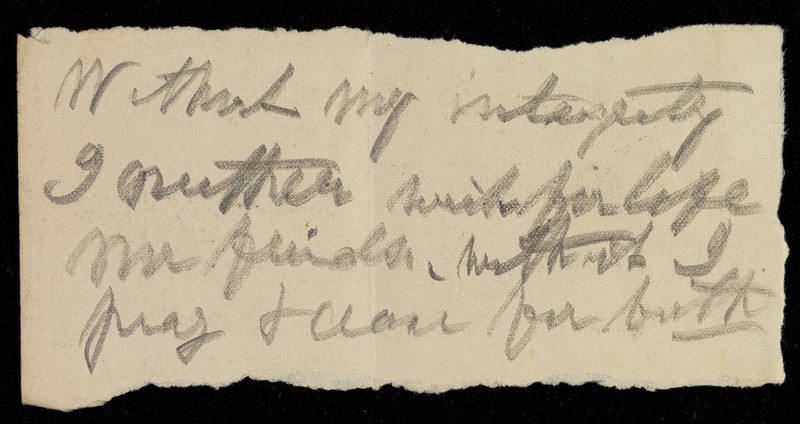 Without my integrity
I neither wish for life
nor friends, without I
pray & close for both